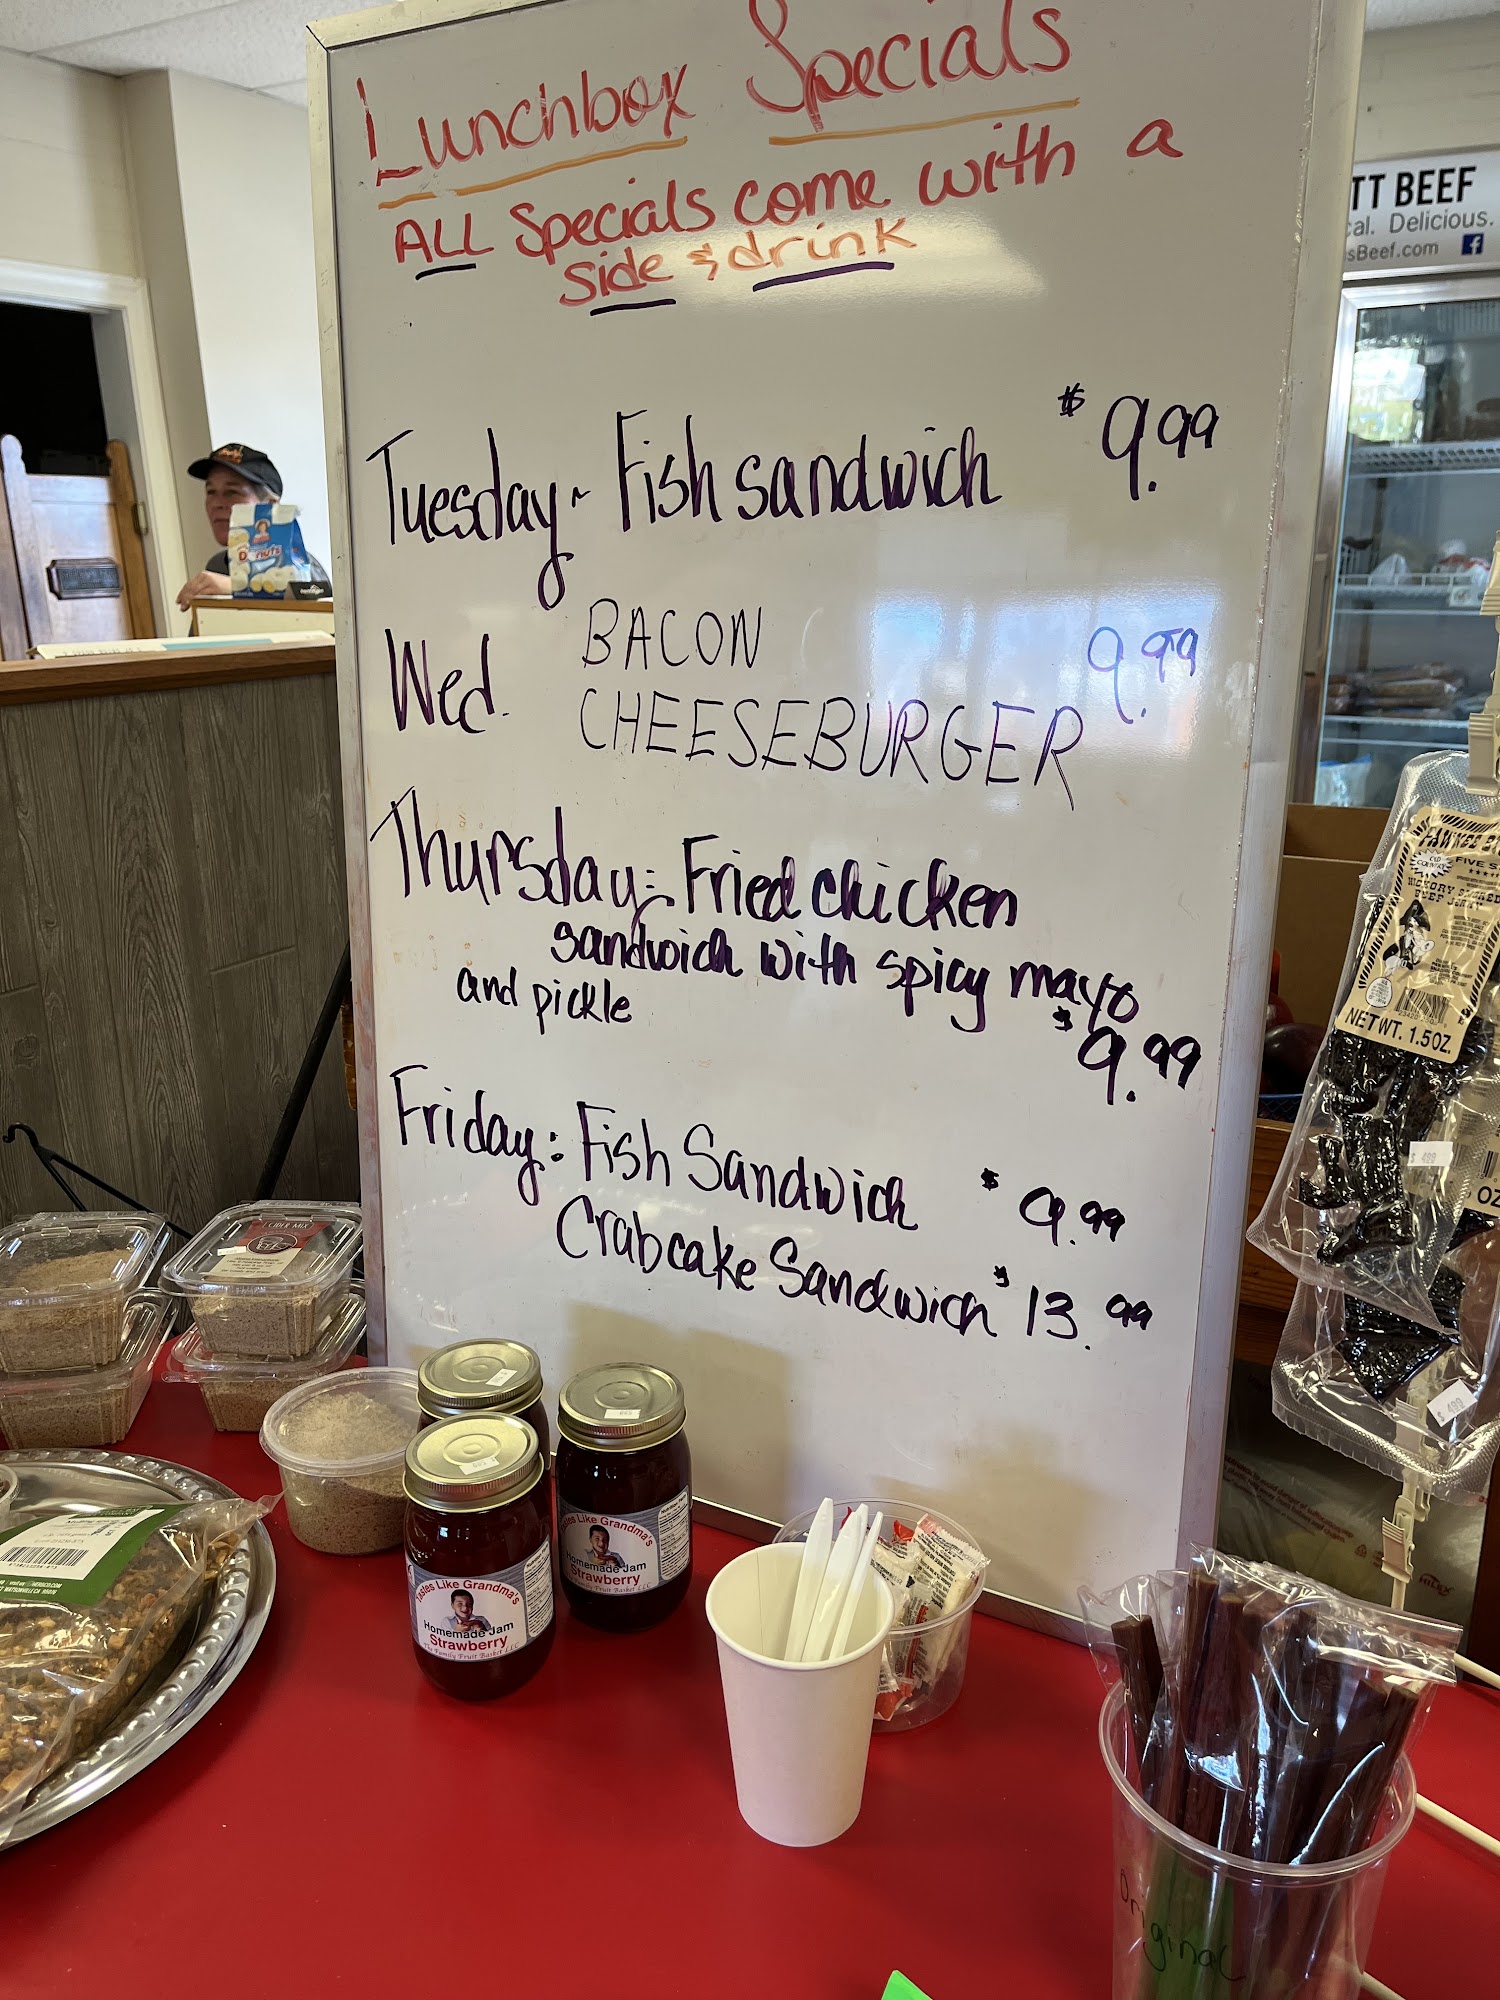 Lunchbox Specials
ALL Specials come with a
side & drink
Tuesday - Fish sandwich $9.99
Wed. BACON
CHEESEBURGER 9.99
Thursday: Fried chicken
sandwich with spicy mayo
and pickle
$9.99
Friday: Fish Sandwich $9.99
Crabcake Sandwich $13.99
TT BEEF
cal. Delicious.
sBeef.com
Donuts
FIVE
HICKORY SMOKED
BEEF JERKY
NET WT. 1.5OZ.
$ 499
OZ
$ 499
CIDER MIX
Tastes Like Grandma's
Homemade Jam
Strawberry
The Family Fruit Basket LLC
Tastes Like Grandma's
Homemade Jam
Strawberry
The Family Fruit Basket LLC
Original